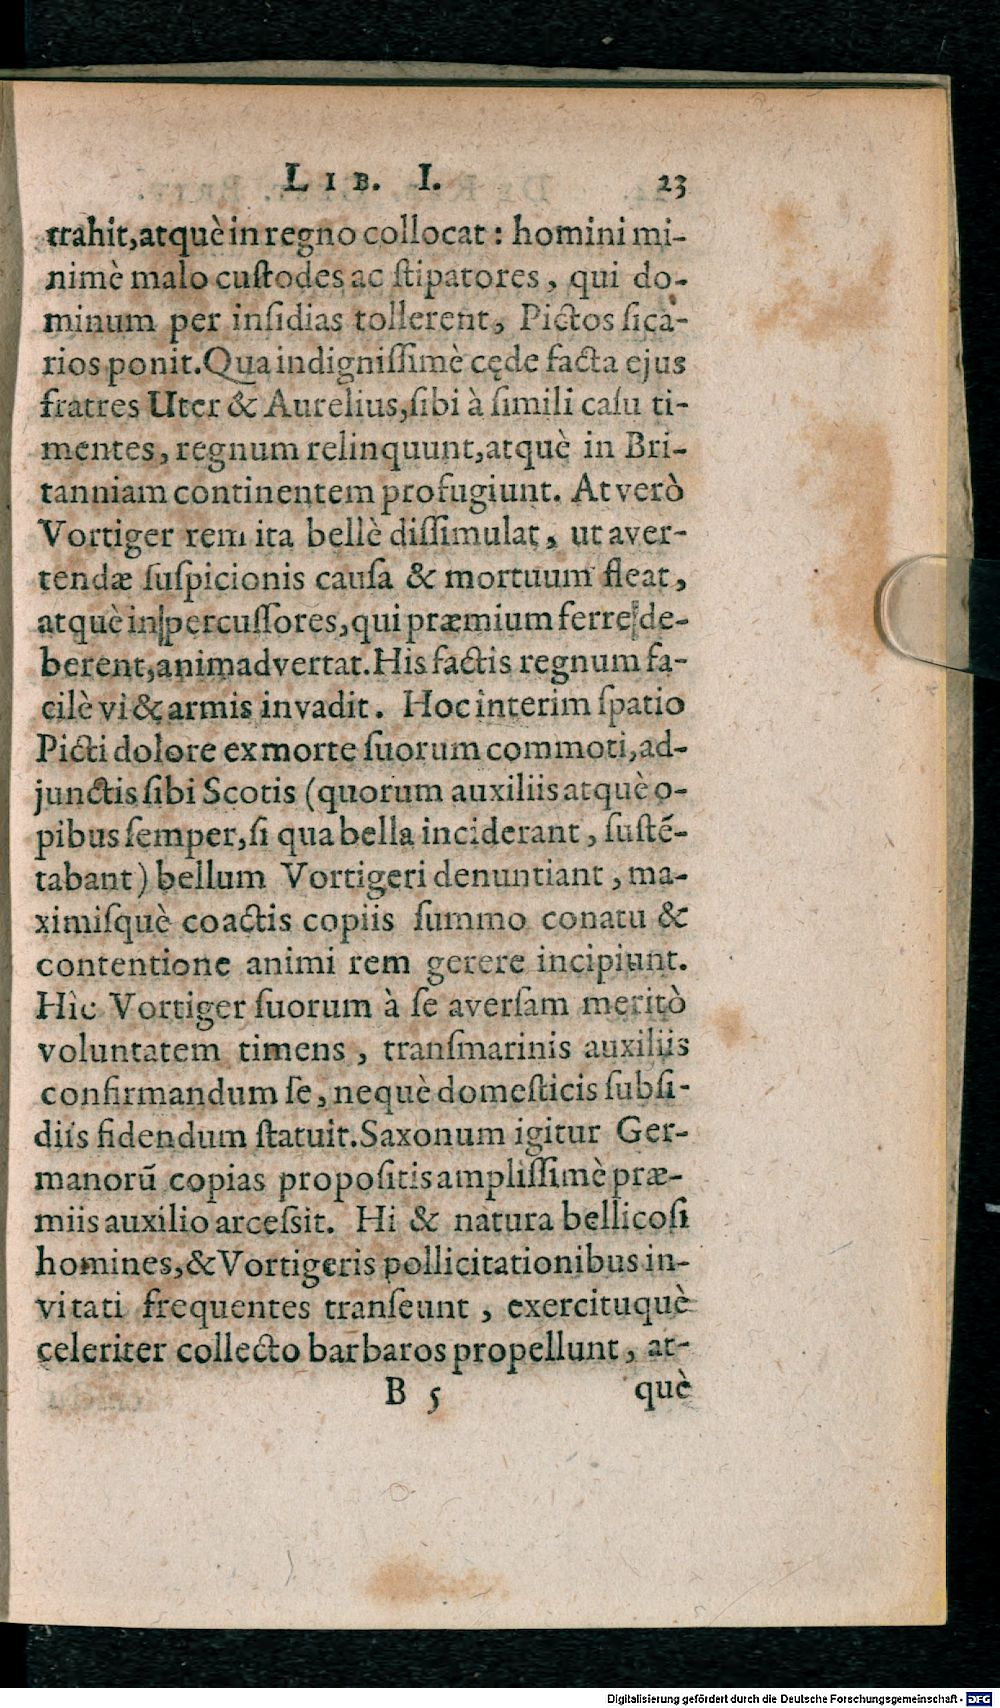 LIB. I. 23
trahit,atquè in regno collocat : homini mi-
nimè malo custodes ac stipatores, qui do-
minum per insidias tollerent, Pictos sica-
rios ponit.Qua indignissimè cęde facta ejus
fratres Uter & Aurelius,sibi à simili casu ti-
mentes, regnum relinquunt,atquè in Bri-
tanniam continentem profugiunt. At verò
Vortiger rem ita bellè dissimulat, ut aver-
tendæ suspicionis causa & mortuum fleat,
atquè in percussores,qui præmium ferre de-
berent,animadvertat.His factis regnum fa-
cilè vi & armis invadit. Hoc interim spatio
Picti dolore ex morte suorum commoti,ad-
junctis sibi Scotis (quorum auxiliis atquè o-
pibus semper,si qua bella inciderant, sustē-
tabant) bellum Vortigeri denuntiant, ma-
ximisquè coactis copiis summo conatu &
contentione animi rem gerere incipiunt.
Hìc Vortiger suorum à se aversam meritò
voluntatem timens, transmarinis auxiliis
confirmandum se, nequè domesticis subsi-
diis fidendum statuit.Saxonum igitur Ger-
manorū copias propositis amplissimè præ-
miis auxilio arcessit. Hi & natura bellicosi
homines,& Vortigeris pollicitationibus in-
vitati frequentes transeunt, exercituquè
celeriter collecto barbaros propellunt, at-
B 5 què
Digitalisierung gefördert durch die Deutsche Forschungsgemeinschaft - DFG